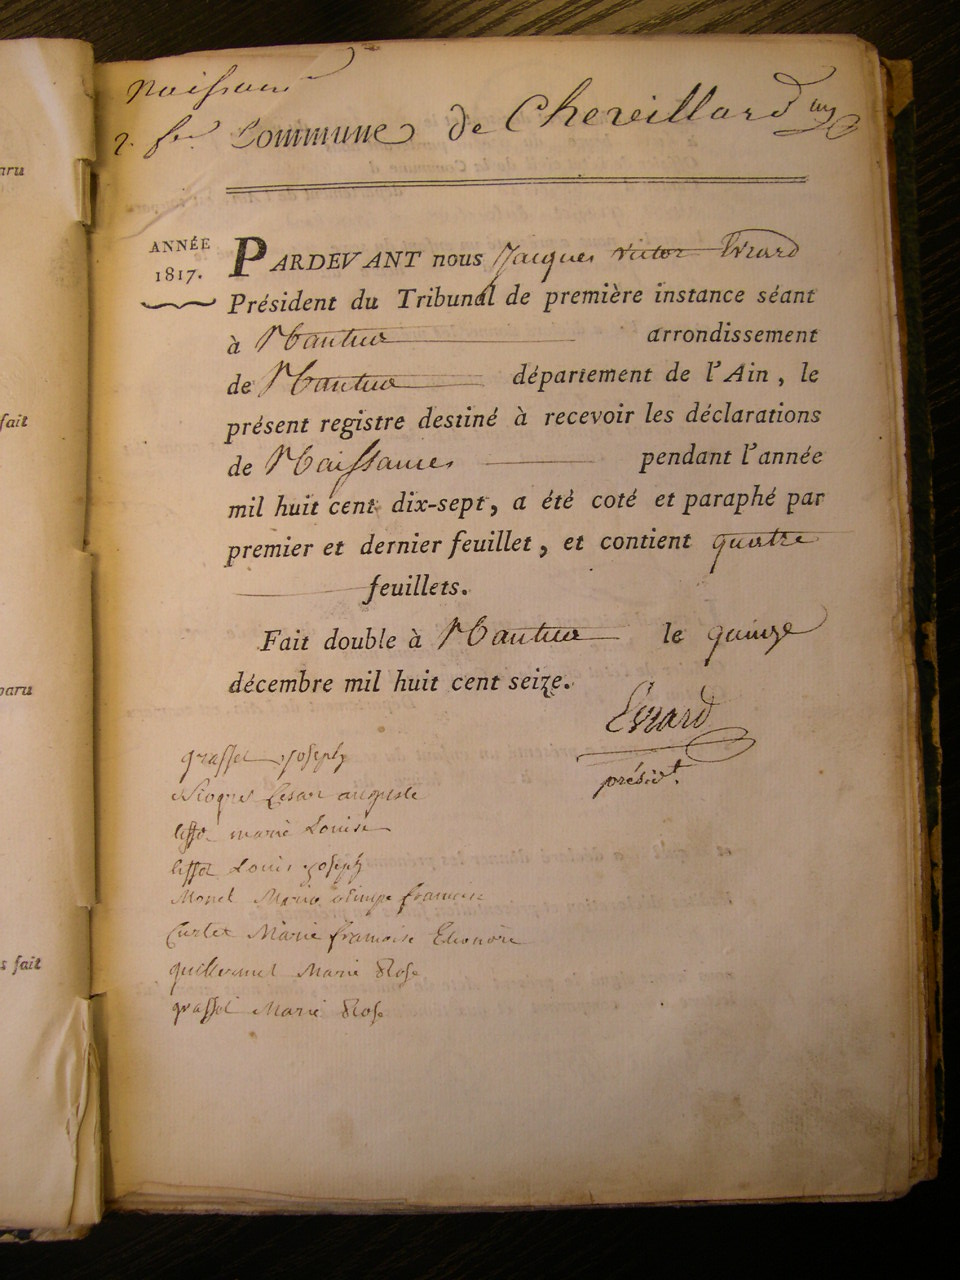 Naissance
2. f.er Commune de Chevillard
ANNÉE
1817.
PARDEVANT nous Jacques Victor Evrard
Président du Tribunal de première instance séant
à Nantua arrondissement
de Nantua département de l'Ain, le
présent registre destiné à recevoir les déclarations
de Naissances pendant l'année
mil huit cent dix-sept, a été coté et paraphé par
premier et dernier feuillet, et contient quatre
feuillets.
Fait double à Nantua le quinze
décembre mil huit cent seize.
Evrard
présid.t
grasset Joseph
Cesar auguste
marie Louise
Louis joseph
Morel Marie olimpe francoise
Curtet Marie francoise Eleonore
guillermet Marie Rose
grasset Marie Rose
aru
fait
paru
s fait